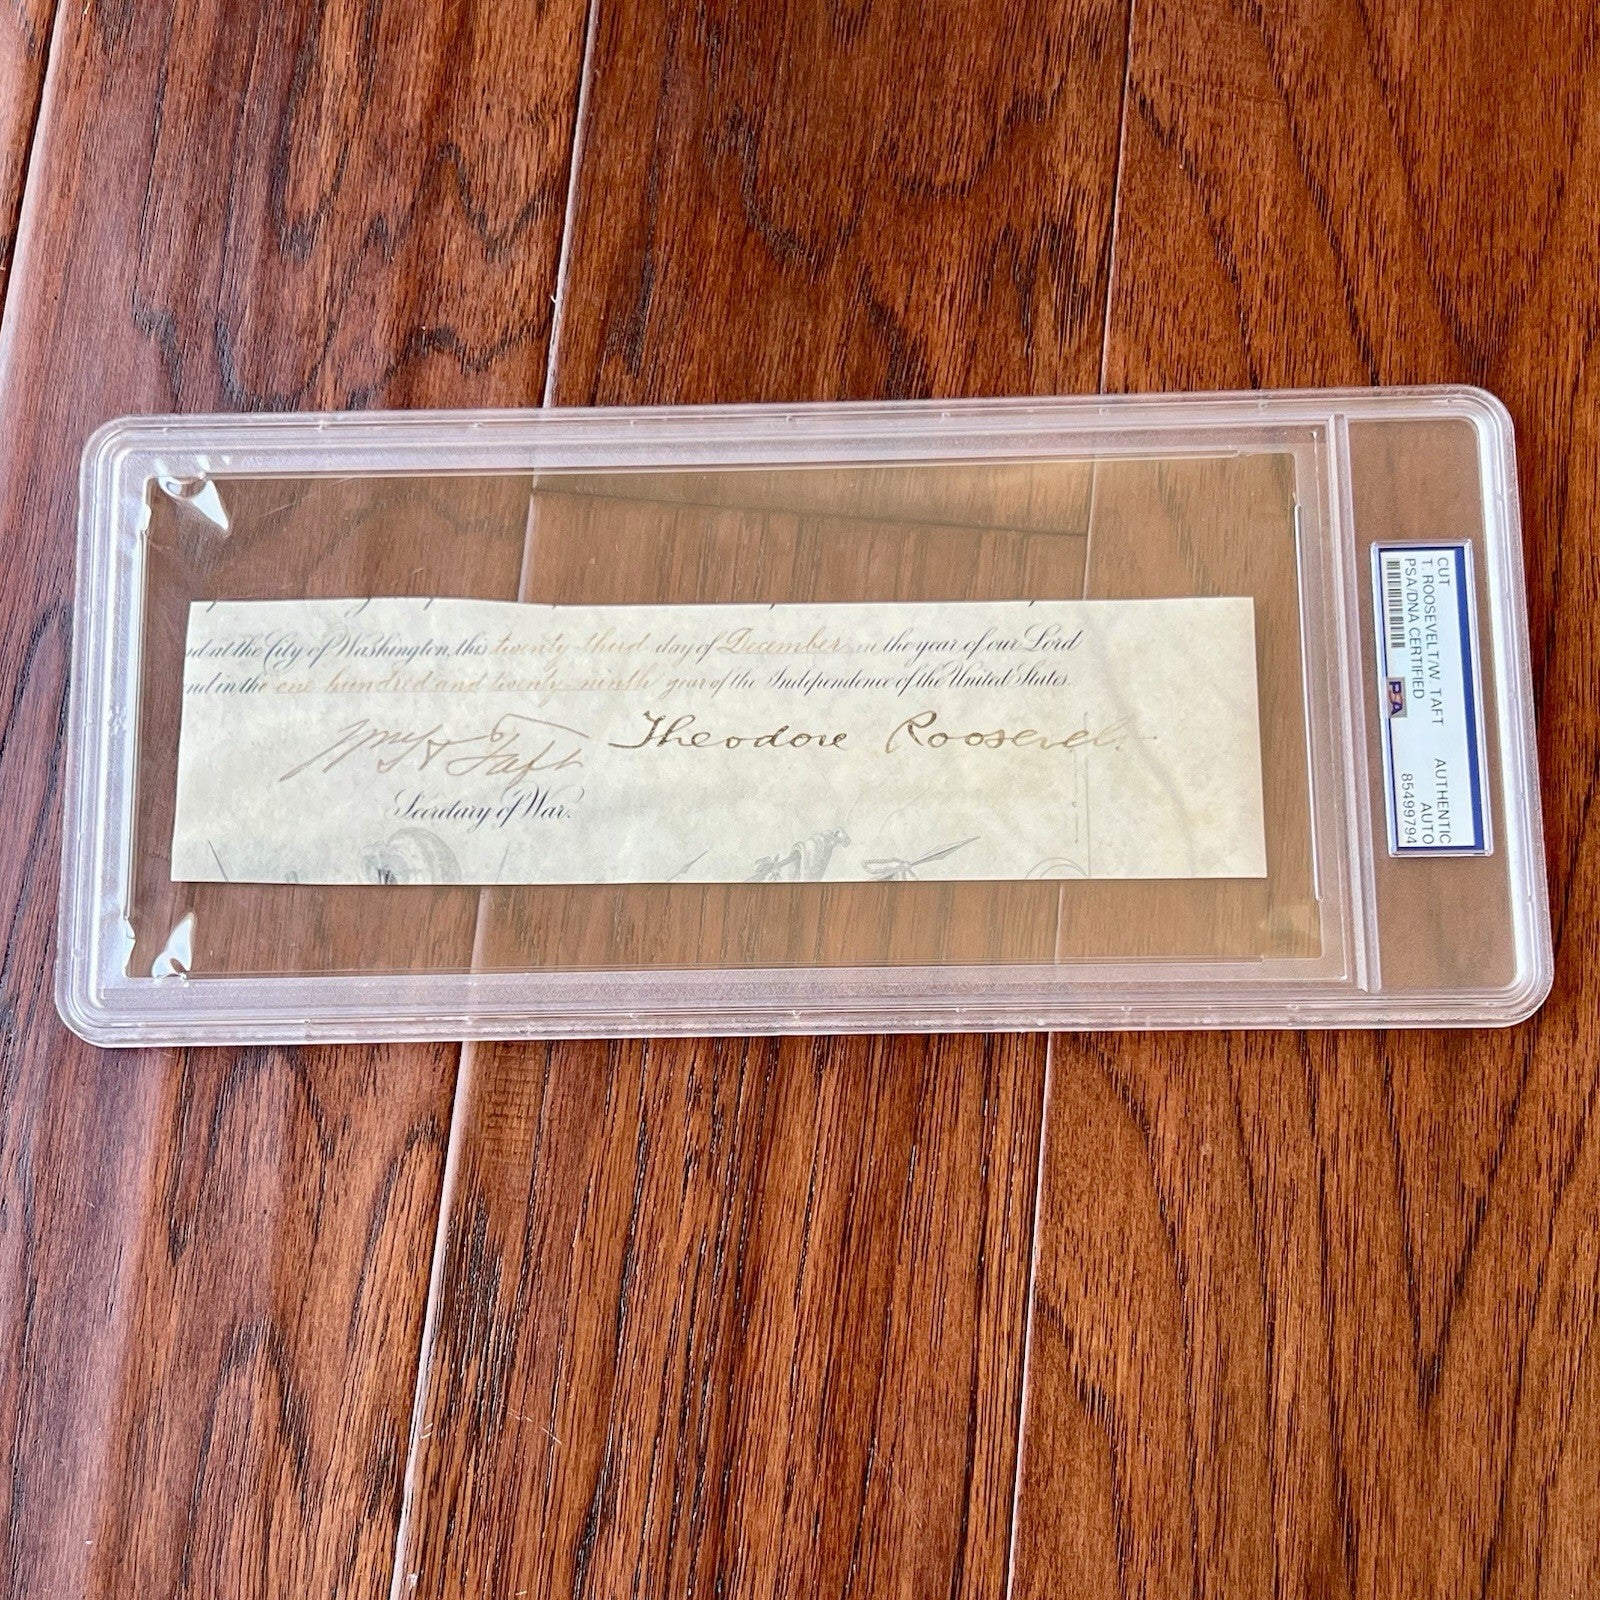 nd at the City of Washington, this twenty-third day of December, in the year of our Lord
nd in the one hundred and twenty-ninth year of the Independence of the United States.
Wm H Taft Theodore Roosevelt
Secretary of War.
CUT
T. ROOSEVELT/W. TAFT AUTHENTIC
PSA/DNA CERTIFIED AUTO
PSA 85499794